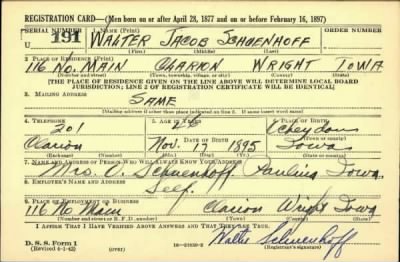 REGISTRATION CARD—(Men born on or after April 28, 1877 and on or before February 16, 1897)
SERIAL NUMBER 1. NAME (Print) ORDER NUMBER
U 191 WALTER JACOB SCHUENHOFF
(First) (Middle) (Last)
2. PLACE OF RESIDENCE (Print)
116 NO. MAIN CLARION WRIGHT IOWA
(Number and street) (Town, township, village, or city) (County) (State)
[THE PLACE OF RESIDENCE GIVEN ON THE LINE ABOVE WILL DETERMINE LOCAL BOARD
JURISDICTION; LINE 2 OF REGISTRATION CERTIFICATE WILL BE IDENTICAL]
3. MAILING ADDRESS
SAME
(Mailing address if other than place indicated on line 2. If same insert word same)
4. TELEPHONE 5. AGE IN YEARS 6. PLACE OF BIRTH
201 46 Ocheydan
DATE OF BIRTH
Clarion Nov. 17 1895 Iowa
(Exchange) (Number) (Mo.) (Day) (Yr.) (State or country)
7. NAME AND ADDRESS OF PERSON WHO WILL ALWAYS KNOW YOUR ADDRESS
Mrs. O. Schuenhoff Paullina Iowa.
8. EMPLOYER'S NAME AND ADDRESS
Self.
9. PLACE OF EMPLOYMENT OR BUSINESS
116 No Main Clarion Wright Iowa
(Number and street or R. F. D. number) (Town) (County) (State)
I AFFIRM THAT I HAVE VERIFIED ABOVE ANSWERS AND THAT THEY ARE TRUE.
D. S. S. Form 1
(Revised 4-1-42) (over) (Registrant's signature)
Walter Schuenhoff